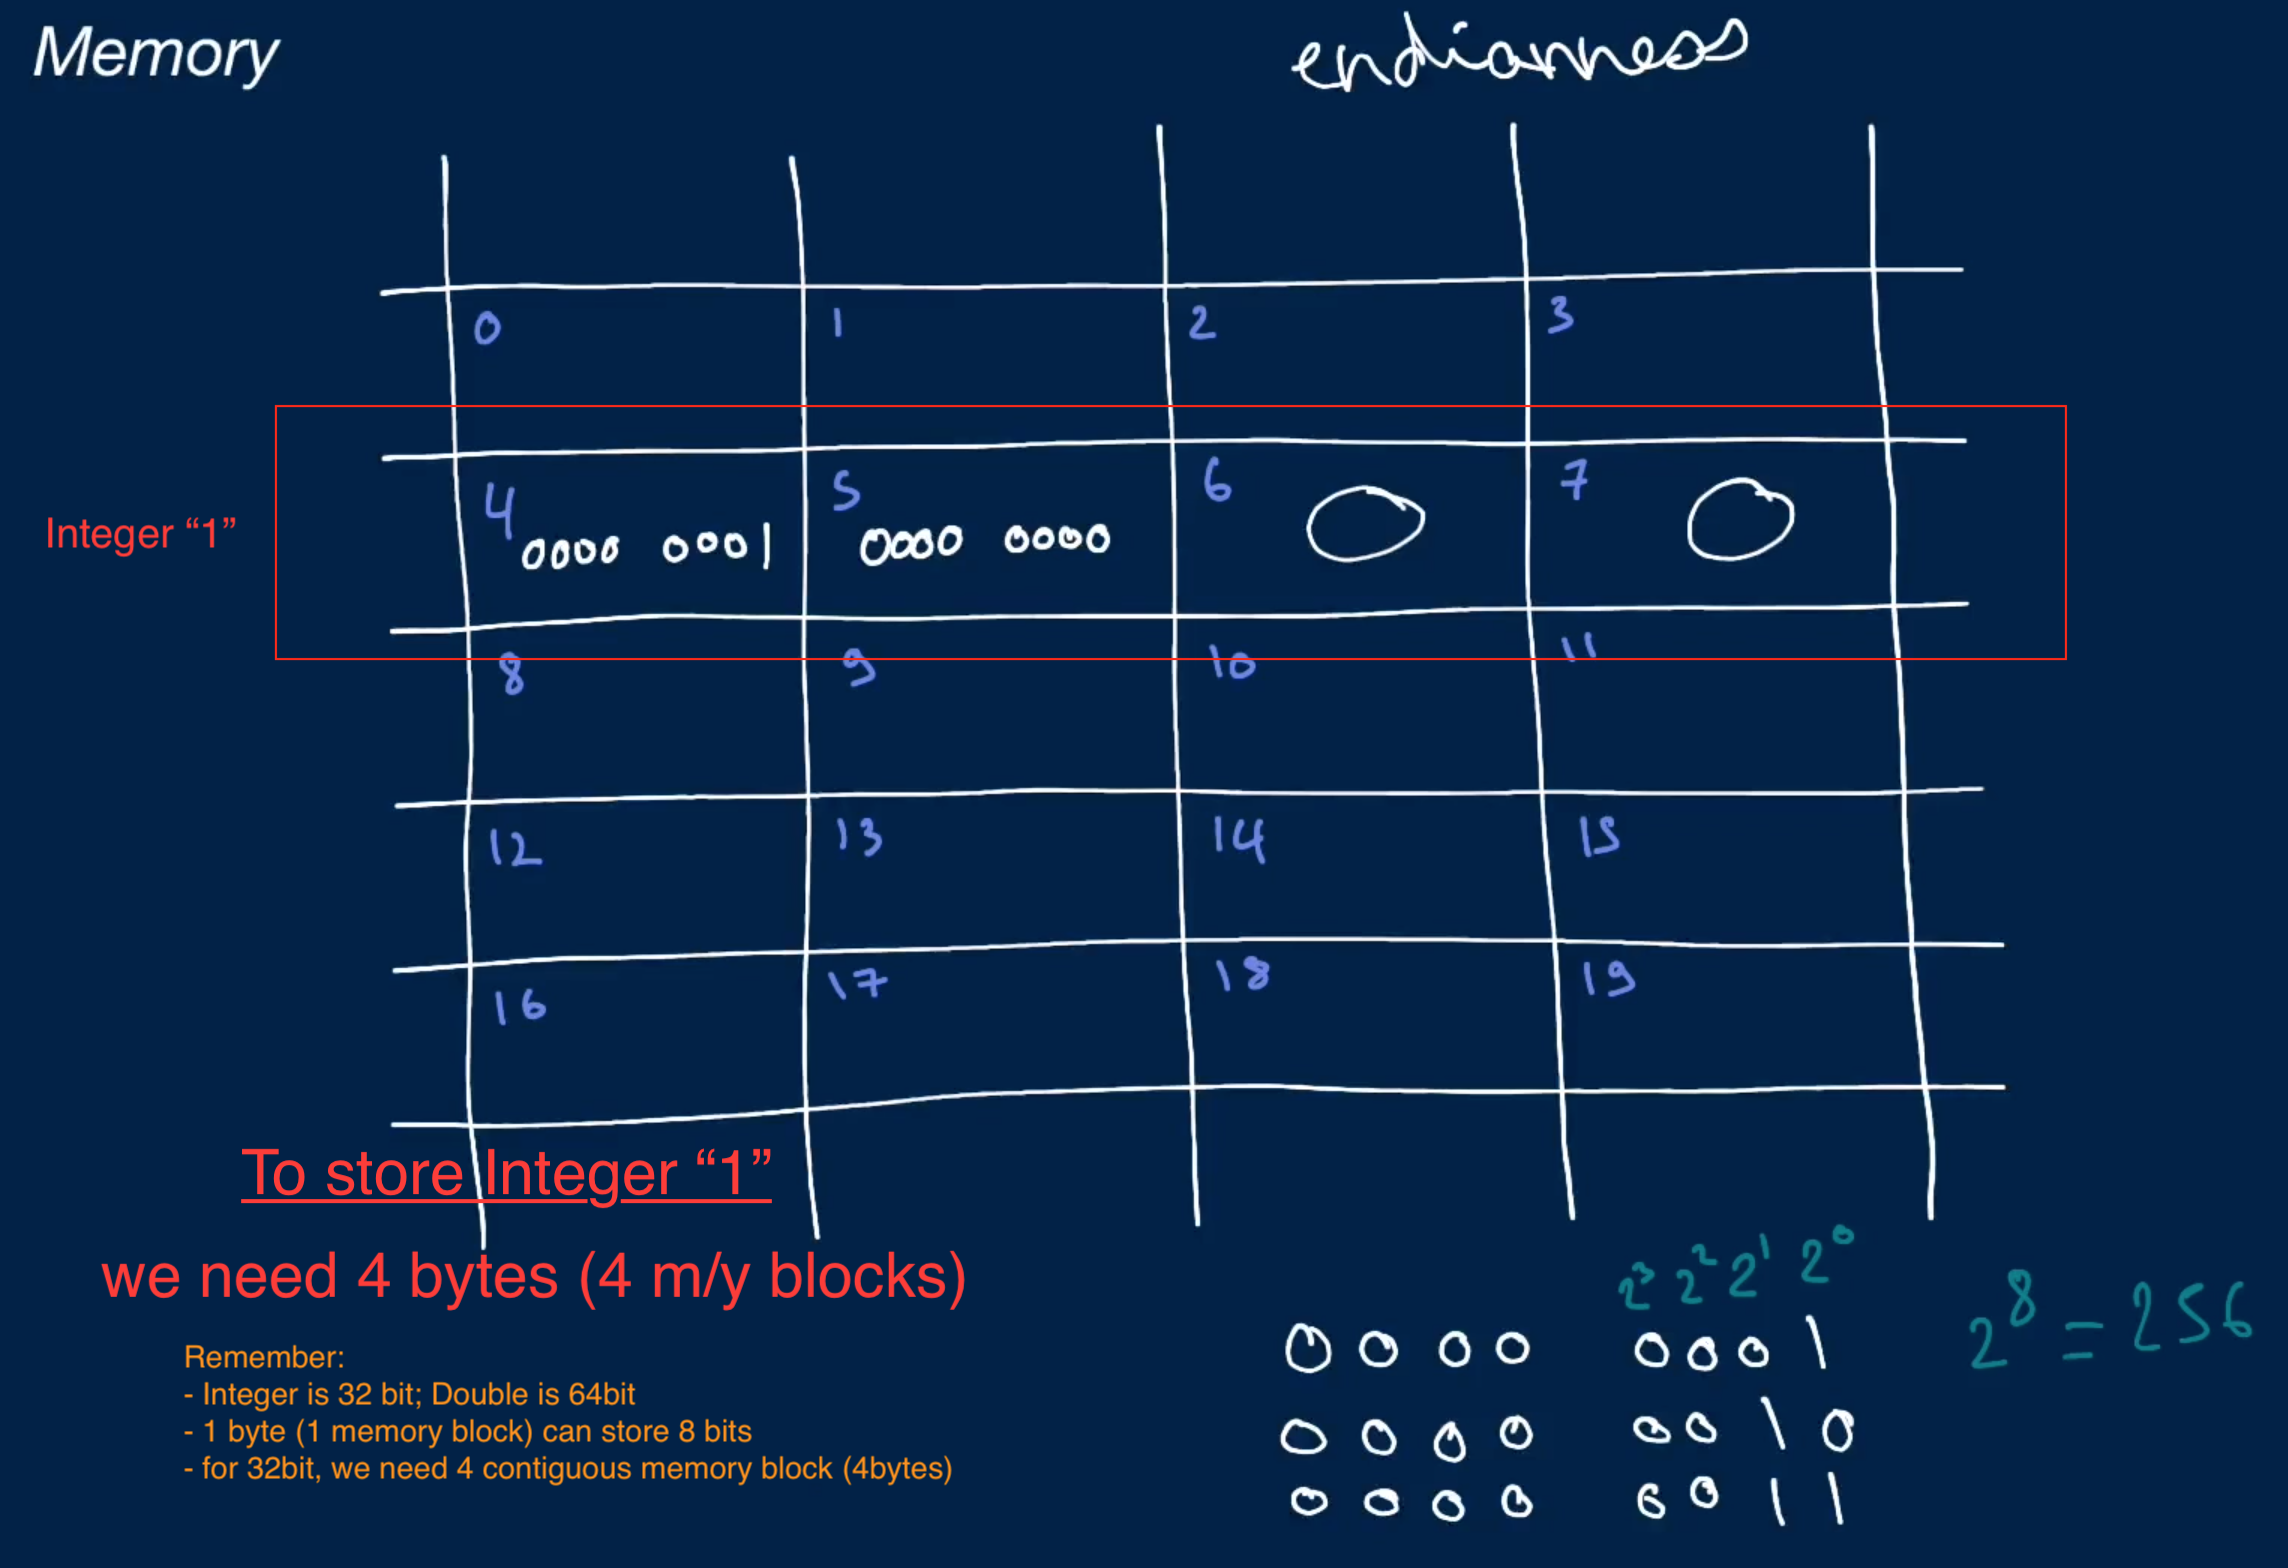 Memory
endianness
0 1 2 3
4 5 6 7
Integer “1”
0000 0001 0000 0000 0 0
8 9 10 11
12 13 14 15
16 17 18 19
To store Integer “1”
we need 4 bytes (4 m/y blocks)
Remember:
- Integer is 32 bit; Double is 64bit
- 1 byte (1 memory block) can store 8 bits
- for 32bit, we need 4 contiguous memory block (4bytes)
2³ 2² 2¹ 2⁰
0 0 0 0 0 0 0 1
2⁸ = 256
0 0 0 0 0 0 1 0
0 0 0 0 0 0 1 1